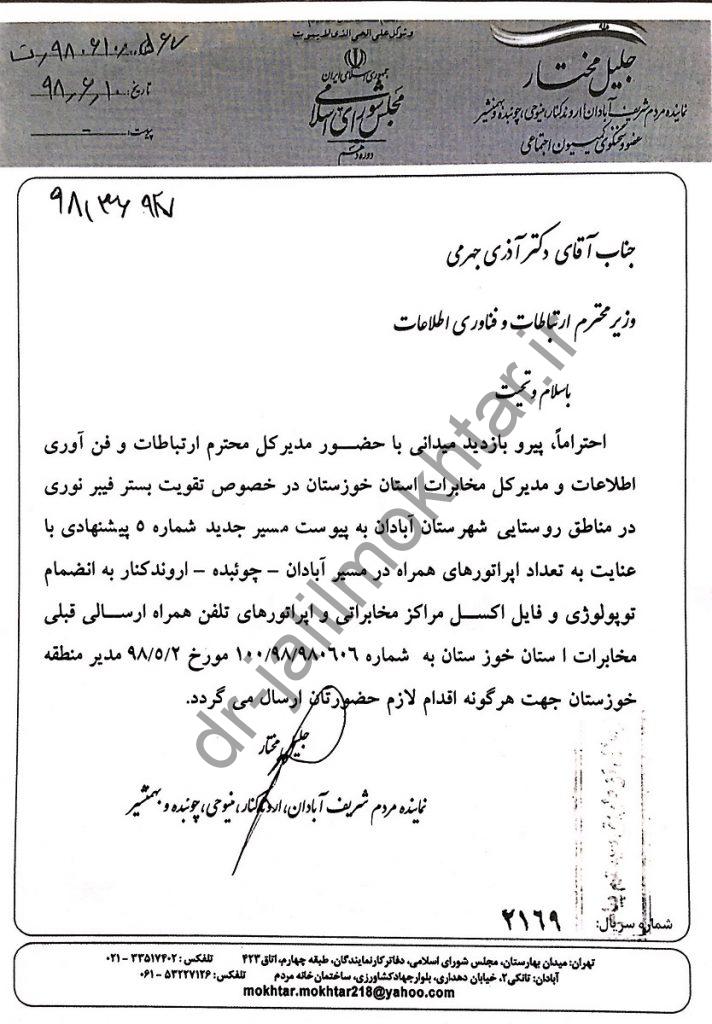 وتوکل علی الحی الذی لایموت
جمهوری اسلامی ایران
مجلس شورای اسلامی
دوره دهم
جلیل مختار
نماینده مردم شریف آبادان، اروندکنار، منیوحی، چوئبده و بهمنشیر
عضو و سخنگوی کمیسیون اجتماعی
تاریخ: ۹۸,۶,۱۰
پیوست: -
جناب آقای دکتر آذری جهرمی
وزیر محترم ارتباطات و فناوری اطلاعات
باسلام و تحیت
احتراماً، پیرو بازدید میدانی با حضور مدیرکل محترم ارتباطات و فن آوری
اطلاعات و مدیرکل مخابرات استان خوزستان در خصوص تقویت بستر فیبر نوری
در مناطق روستایی شهرستان آبادان به پیوست مسیر جدید شماره ۵ پیشنهادی با
عنایت به تعداد اپراتورهای همراه در مسیر آبادان – چوئبده – اروندکنار به انضمام
توپولوژی و فایل اکسل مراکز مخابراتی و اپراتورهای تلفن همراه ارسالی قبلی
مخابرات ا ستان خوز ستان به شماره ۱۰۰/۹۸/۹۸۰۶۰۶ مورخ ۹۸/۵/۲ مدیر منطقه
خوزستان جهت هرگونه اقدام لازم حضورتان ارسال می گردد.
جلیل مختار
نماینده مردم شریف آبادان، اروندکنار، منیوحی، چوئبده و بهمنشیر
dr-jalilmokhtar.ir
شماره سریال: ۲۱۶۹
تهران: میدان بهارستان، مجلس شورای اسلامی، دفاتر کار نمایندگان، طبقه چهارم، اتاق ۴۲۳ تلفکس: ۳۳۵۱۷۴۰۲ – ۰۲۱
آبادان: تانکی۲، خیابان دهداری، بلوار جهاد کشاورزی، ساختمان خانه مردم تلفکس: ۵۳۲۲۷۱۲۶ – ۰۶۱
mokhtar.mokhtar218@yahoo.com